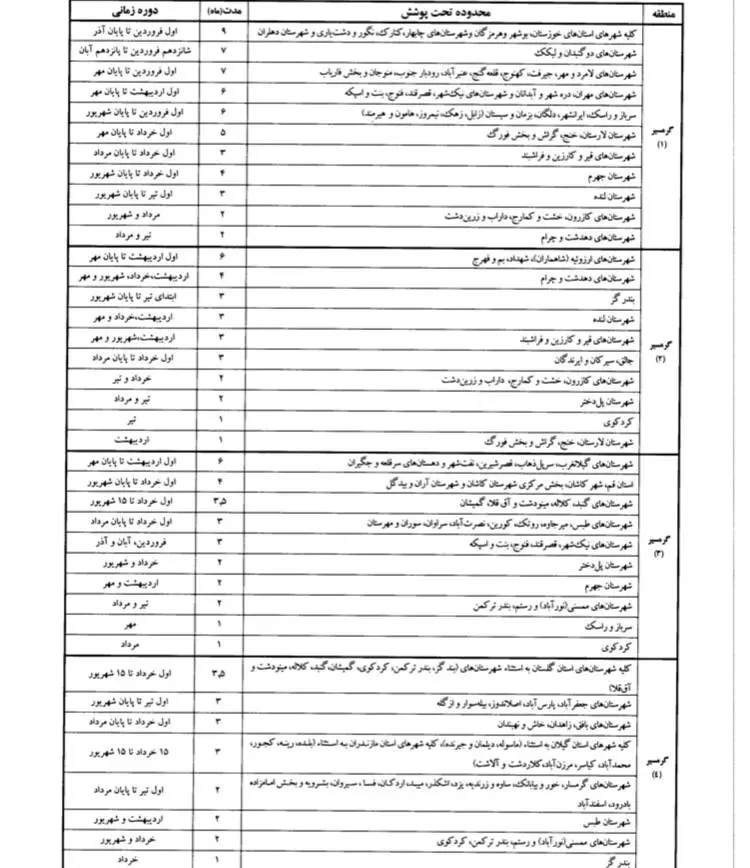 منطقه محدوده تحت پوشش مدت(ماه) دوره زمانی
گرمسیر (۱)
کلیه شهرهای استان‌های خوزستان، بوشهر و هرمزگان و شهرستان‌های چابهار، کنارک، نگور و دشت‌یاری و شهرستان دهلران ۹ اول فروردین تا پایان آذر
شهرستان‌های دوگنبدان و لیکک ۷ شانزدهم فروردین تا پانزدهم آبان
شهرستان‌های لامرد و مهر، جیرفت، کهنوج، قلعه‌گنج، عنبرآباد، رودبار جنوب، منوجان و بخش فاریاب ۷ اول فروردین تا پایان مهر
شهرستان‌های مهران، دره شهر و آبدانان و شهرستان‌های نیک‌شهر، قصرقند، فنوج، بنت و اسپکه ۶ اول اردیبهشت تا پایان مهر
سرباز و راسک، ایرانشهر، دلگان، بزمان و سیستان (زابل، زهک، نیمروز، هامون و هیرمند) ۶ اول فروردین تا پایان شهریور
شهرستان لارستان، خنج، گراش و بخش فورگ ۵ اول خرداد تا پایان مهر
شهرستان‌های قیر و کارزین و فراشبند ۳ اول خرداد تا پایان مرداد
شهرستان جهرم ۴ اول خرداد تا پایان شهریور
شهرستان لنده ۳ اول تیر تا پایان شهریور
شهرستان‌های کازرون، خشت و کمارج، داراب و زرین‌دشت ۲ مرداد و شهریور
شهرستان‌های دهدشت و چرام ۲ تیر و مرداد
گرمسیر (۲)
شهرستان‌های ارزوئیه (شاهماران)، شهداد، بم و فهرج ۶ اول اردیبهشت تا پایان مهر
شهرستان‌های دهدشت و چرام ۴ اردیبهشت،خرداد، شهریور و مهر
بندر گز ۳ ابتدای تیر تا پایان شهریور
شهرستان لنده ۳ اردیبهشت،خرداد و مهر
شهرستان‌های قیر و کارزین و فراشبند ۳ اردیبهشت،شهریور و مهر
جالق، سیرکان و ایرندگان ۳ اول خرداد تا پایان مرداد
شهرستان‌های کازرون، خشت و کمارج، داراب و زرین‌دشت ۲ خرداد و تیر
شهرستان پل‌دختر ۲ تیر و مرداد
کردکوی ۱ تیر
شهرستان لارستان، خنج، گراش و بخش فورگ ۱ اردیبهشت
گرمسیر (۳)
شهرستان‌های گیلانغرب، سرپل‌ذهاب، قصرشیرین، نفت‌شهر و دهستان‌های سرقلعه و جگیران ۶ اول اردیبهشت تا پایان مهر
استان قم، شهر کاشان، بخش مرکزی شهرستان کاشان و شهرستان آران و بیدگل ۴ اول خرداد تا پایان شهریور
شهرستان‌های گنبد، کلاله، مینودشت و آق قلا، گمیشان ۳,۵ اول خرداد تا ۱۵ شهریور
شهرستان‌های طبس، میرجاوه، روتک، کورین، نصرت‌آباد، سراوان، سوران و مهرستان ۳ اول خرداد تا پایان مرداد
شهرستان‌های نیک‌شهر، قصرقند، فنوج، بنت و اسپکه ۳ فروردین، آبان و آذر
شهرستان پل‌دختر ۲ خرداد و شهریور
شهرستان جهرم ۲ اردیبهشت و مهر
شهرستان‌های ممسنی(نورآباد) و رستم، بندر ترکمن ۲ تیر و مرداد
سرباز و راسک ۱ مهر
کردکوی ۱ مرداد
گرمسیر (۴)
کلیه شهرستان‌های استان گلستان به استثناء شهرستان‌های (بندگز، بندر ترکمن، کردکوی، گمیشان،گنبد، کلاله، مینودشت و
آق‌قلا) ۳,۵ اول خرداد تا ۱۵ شهریور
شهرستان‌های جعفرآباد، پارس‌آباد، اصلاندوز، بیله‌سوار و ازگله ۳ اول تیر تا پایان شهریور
شهرستان‌های بافق، زاهدان، خاش و نهبندان ۳ اول خرداد تا پایان مرداد
کلیه شهرهای استان گیلان به استثناء (ماسوله، دیلمان و جیرنده)، کلیه شهرهای استان مازندران به استثناء (بلده، رینه، کجور،
محمدآباد، کیاسر، مرزن‌آباد، کلاردشت و آلاشت) ۳ ۱۵ خرداد تا ۱۵ شهریور
شهرستان‌های گرمسار، خور و بیابانک، ساوه و زرندیه، یزد، اشکذر، میبد، اردکان، فسا، سیروان، بشرویه و بخش امامزاده
بادرود، اسفندآباد ۲ اول تیر تا پایان مرداد
شهرستان طبس ۲ اردیبهشت و شهریور
شهرستان‌های ممسنی(نورآباد) و رستم، بندر ترکمن، کردکوی ۲ خرداد و شهریور
بندر گز ۱ خرداد